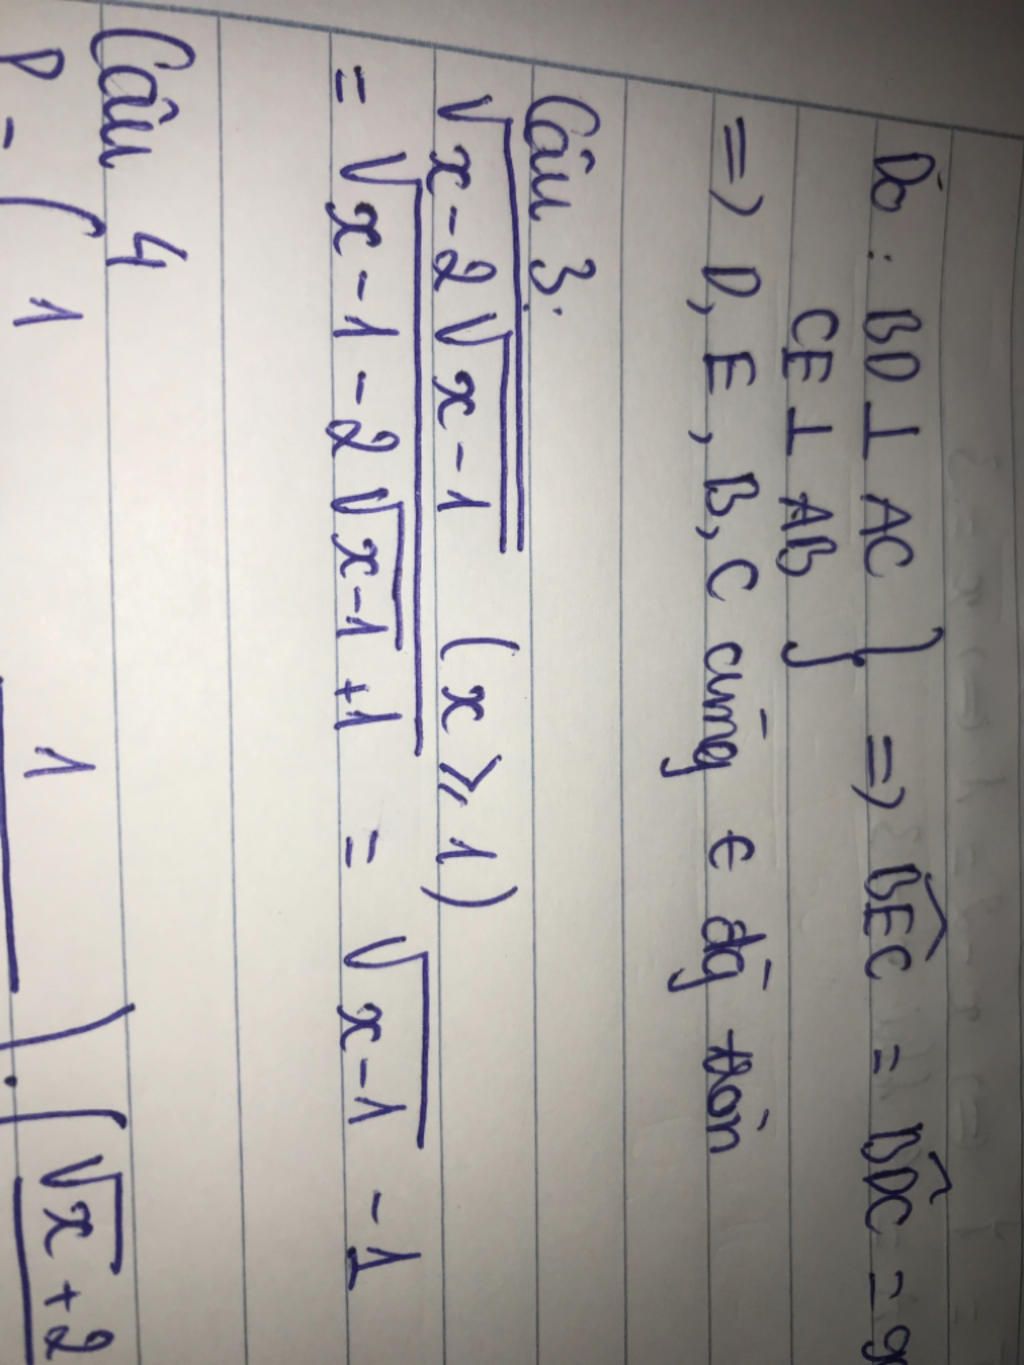 Do : BD ⊥ AC } => BEC = BDC =
CE ⊥ AB
=> D, E, B, C cùng ∈ đg tròn
Câu 3.
√(x-2√(x-1)) (x ⩾ 1)
= √(x-1-2√(x-1)+1) = √(x-1) - 1
Câu 4
P = ( 1 1 ) . ( √x + 2